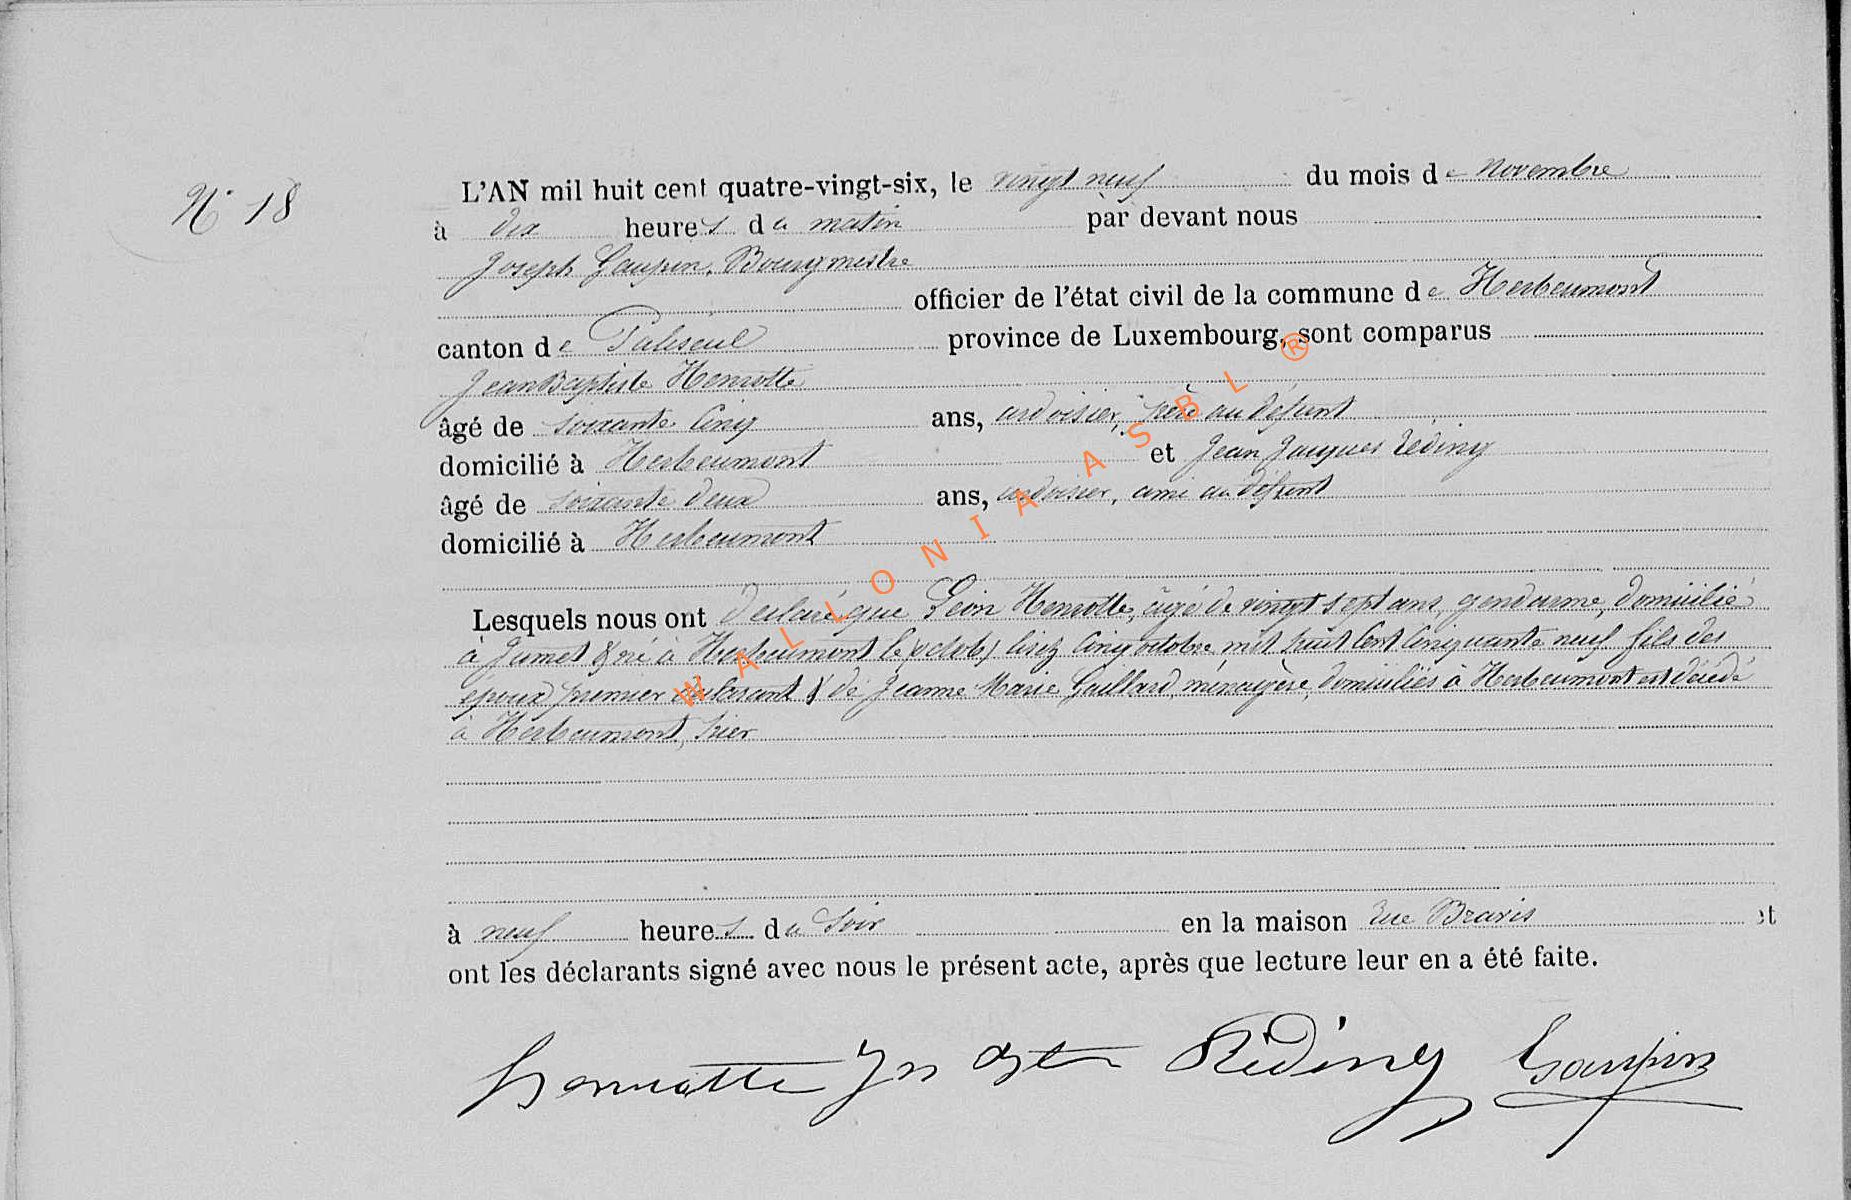 N° 18
L'AN mil huit cent quatre-vingt-six, le vingt neuf du mois de novembre
à dix heures du matin par devant nous
Joseph Gaupin, Bourgmestre
officier de l'état civil de la commune de Herbeumont
canton de Paliseul province de Luxembourg, sont comparus
Jean Baptiste Henrotte
âgé de soixante cinq ans, ardoisier, père au défunt
domicilié à Herbeumont et Jean Jacques Réding
âgé de soixante deux ans, ardoisier, ami au défunt
domicilié à Herbeumont
Lesquels nous ont déclaré que Léon Henrotte, âgé de vingt sept ans, gendarme, domicilié
à Jumet & né à Herbeumont le (octob) lisez cinq octobre mil huit cent cinquante neuf fils des
époux premier déclarant & de Jeanne Marie Gaillard, ménagère, domiciliés à Herbeumont est décédé
à Herbeumont, hier
à neuf heures du soir en la maison rue Bravis et
ont les déclarants signé avec nous le présent acte, après que lecture leur en a été faite.
Henrotte Jn Bte Réding Gaupin
WALLONIA ASBL ®